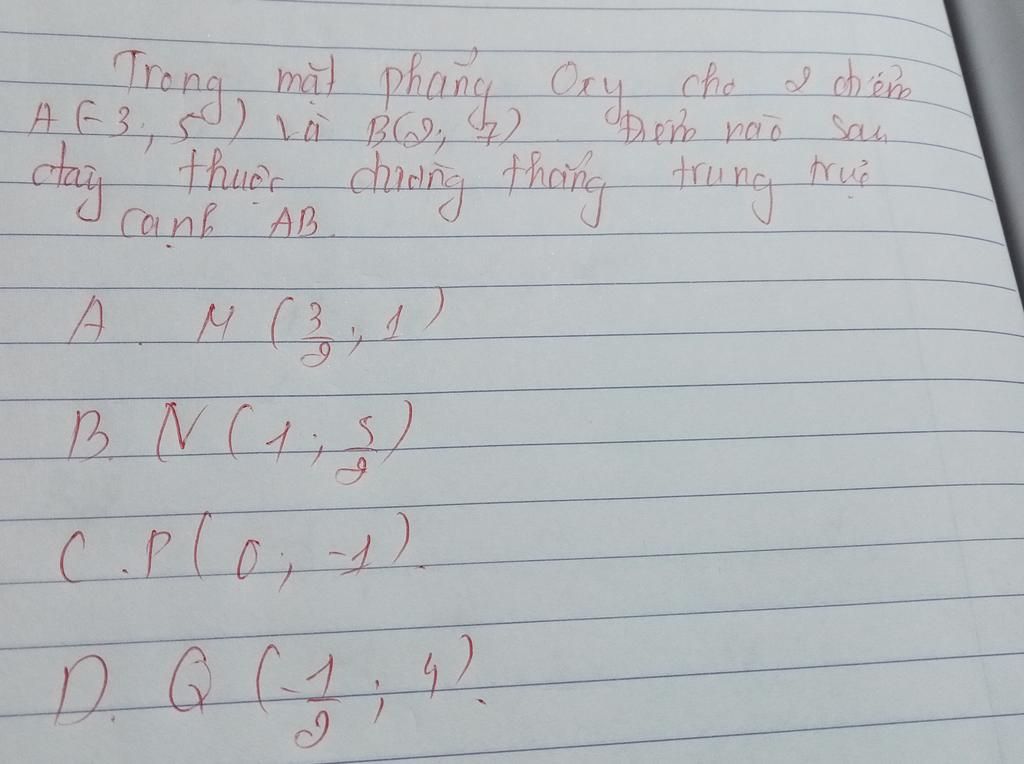 Trong mặt phẳng Oxy cho 2 điểm
A(-3; 5) và B(2; 7) Điểm nào sau
đây thuộc đường thẳng trung trực
cạnh AB.
A. M (3/2; 1)
B. N (1; 5/2)
C. P (0; -1).
D. Q (-1/2; 4).